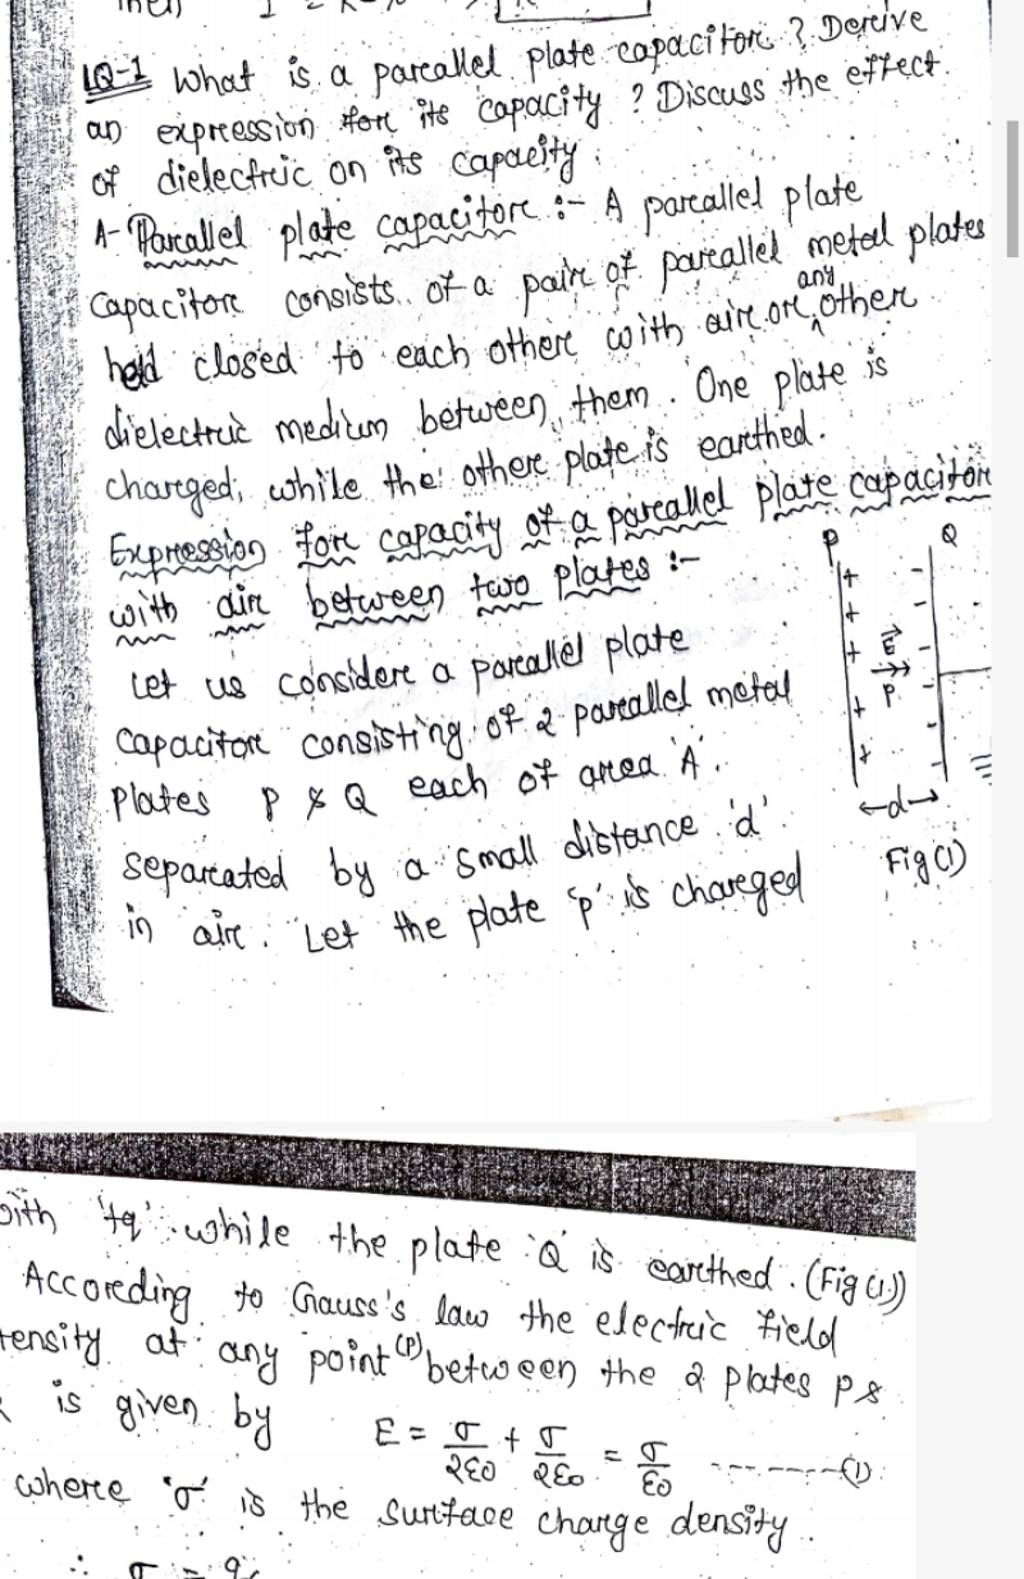 LQ-1 What is a parallel plate capacitor ? Derive
an expression for its capacity ? Discuss the effect
of dielectric on its capacity.
A- Parallel plate capacitor :- A parallel plate
capacitor consists of a pair of parallel metal plates
held closed to each other with air or any other
dielectric medium between them. One plate is
charged, while the other plate is earthed.
Expression for capacity of a parallel plate capacitor
with air between two plates :-
Let us consider a parallel plate
capacitor consisting of 2 parallel metal
plates P & Q each of area 'A'.
separated by a small distance 'd'
in air. Let the plate 'p' is charged
P Q
+ -
+ -
+ E -
P -
+ -
+ -
←d→
Fig (1)
with '+q' while the plate 'Q' is earthed. (Fig (1))
According to Gauss's law the electric field
tensity at any point (P) between the 2 plates P &
is given by E = σ/2ε0 + σ/2ε0 = σ/ε0 ---------(1)
where 'σ' is the surface charge density.
∴ σ = q